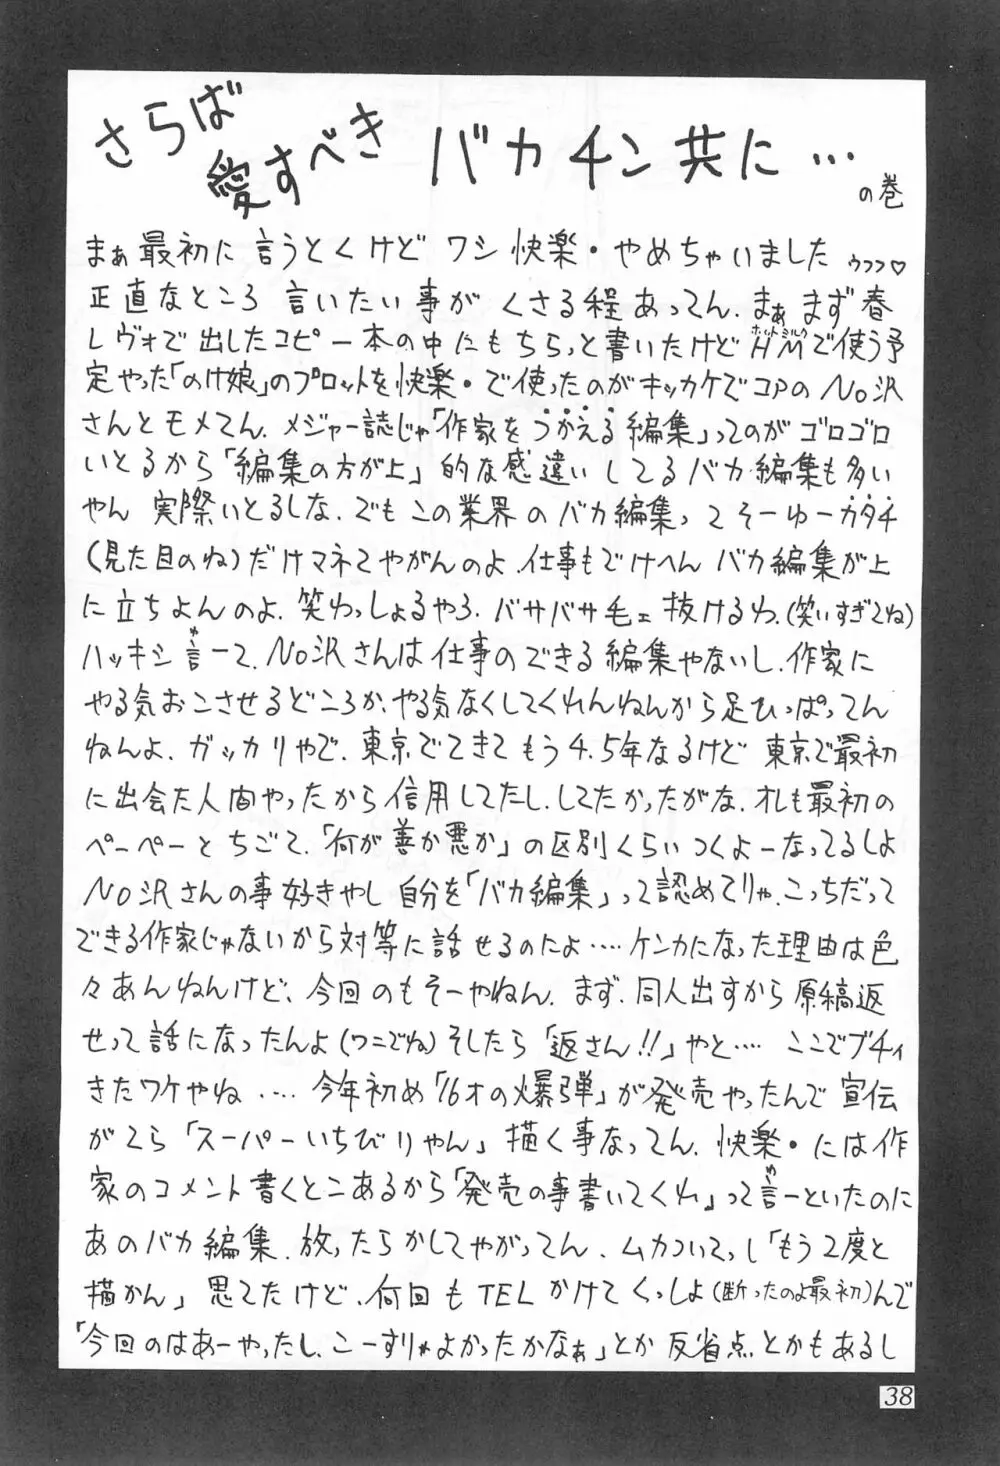 さらば
愛すべき バカチン共に…
の巻
まぁ最初に言うとくけど ワシ 快楽・やめちゃいました ゥフフ♡
正直なところ 言いたい事が くさる程あってん. まぁまず春
レヴォで出したコピー本の中にもちらっと書いたけどHM(ホットミルク)で使う予
定やった「のけ娘」のプロットを快楽・で使ったのがキッカケでコアのNo沢
さんとモメてん. メジャー誌じゃ「作家をつかえる編集」ってのがゴロゴロ
いとるから「編集の方が上」的な感違いしてるバカ編集も多い
やん 実際いとるしな. でもこの業界のバカ編集ってそーゆーカタチ
(見た目のね)だけマネてやがんのよ. 仕事もでけへん バカ編集が上
に立ちよんのよ. 笑わっしょるやろ. バサバサ毛ェ抜けるわ.(笑いすぎてね)
ハッキシ言(ゆ)ーて. No沢さんは仕事のできる編集やないし. 作家に
やる気おこさせるどころか. やる気なくしてくれんねんから足ひっぱってん
ねんよ. ガッカリやで. 東京でてきてもう4.5年なるけど 東京で最初
に出会た人間やったから信用してたし. してたかったがな. オレも最初の
ペーペーとちごて.「何が善か悪か」の区別くらいつくよーなってるしよ
No沢さんの事好きやし 自分を「バカ編集」って認めてりゃ. こっちだって
できる作家じゃないから対等に話せるのによ…. ケンカになった理由は色
々あんねんけど、今回のもそーやねん. まず. 同人出すから原稿返
せって話になったんよ(ワニでね)そしたら「返さん!!」やと…. ここでブチィ
きたワケやね…. 今年初め「16才の爆弾」が発売やったんで宣伝
がてら「スーパーいちびりやん」描く事なってん. 快楽・には作
家のコメント書くとこあるから「発売の事書いてくれ」って言(ゆ)ーといたのに
あのバカ編集. 放ったらかしてやがってん. ムカついてっし「もう2度と
描かん」思てたけど. 何回もTELかけてくっしよ(断ったのよ最初)んで
「今回のはあーやったし. こーすりゃよかったかなぁ」とか反省点とかもあるし
38